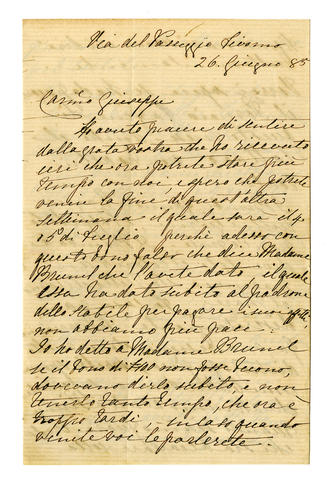 Via del Passeggio Livorno
26. Giugno 85
Carino Giuseppe
Ho avuto piacere di sentire
dalla grata vostra che ho ricevuto
ieri che ora potrete stare più
tempo con noi e spero che potrete
venire la fine di quest'altra
settimana - il quale sara il 4
o 5 di Luglio perchè adesso con
questo bono falso che dice Madame
Brunel che l'avete dato il quale
essa ha dato subito al padrone
dello stabile per pagare i suoi affitti
non abbiamo più pace.
Io ho detto a Madame Brunel
se il bono di non fosse buono,
dovevano dirlo subito, e non
tenerlo tanto tempo, che ora è
troppo tardi, quando
venite voi le parlerete.